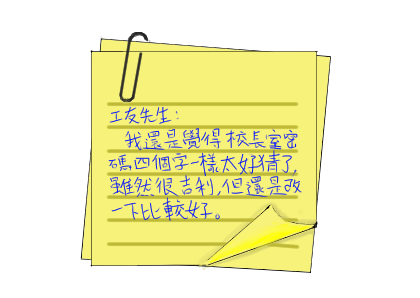 工友先生：
我還是覺得校長室密
碼四個字一樣太好猜了，
雖然很吉利，但還是改
一下比較好。